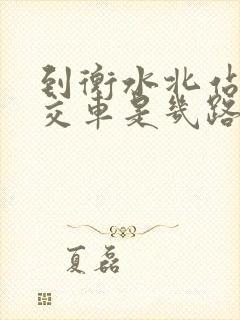 到衡水北
交車是幾路
夏磊